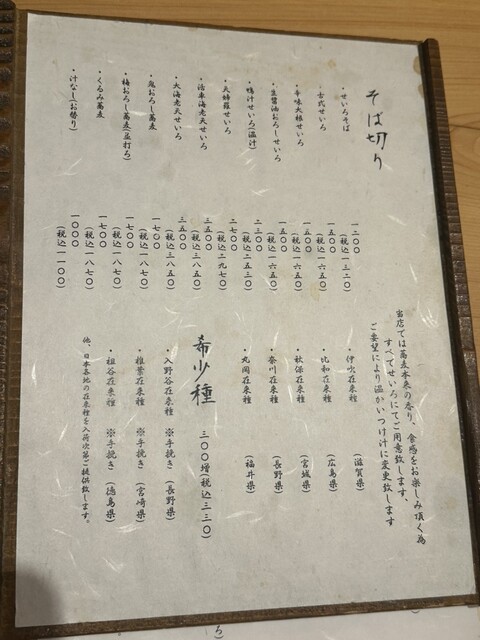 そば切り
・せいろそば 一二〇〇
(税込一三二〇)
・古代せいろ 一五〇〇
(税込一六五〇)
・辛味大根せいろ 一五〇〇
(税込一六五〇)
・生醤油おろしせいろ 一五〇〇
(税込一六五〇)
・鴨汁せいろ(温汁) 二三〇〇
(税込二五三〇)
・天婦羅せいろ 二七〇〇
(税込二九七〇)
・活車海老天せいろ 三五〇〇
(税込三八五〇)
・大海老天せいろ 三五〇〇
(税込三八五〇)
・鬼おろし蕎麦 一七〇〇
(税込一八七〇)
・梅おろし蕎麦(並打ち) 一七〇〇
(税込一八七〇)
・くるみ蕎麦 一七〇〇
(税込一八七〇)
・汁なし(お替り) 一〇〇〇
(税込一一〇〇)
当店では蕎麦本来の香り、食感をお楽しみ頂く為
すべてせいろにてご用意致します、
ご要望により温かいつけ汁に変更致します
・伊吹在来種 (滋賀県)
・比和在来種 (広島県)
・秋保在来種 (宮城県)
・奈川在来種 (長野県)
・丸岡在来種 (福井県)
希少種 三〇〇増(税込三三〇)
・入野谷在来種 ※手挽き (長野県)
・椎葉在来種 ※手挽き (宮崎県)
・祖谷在来種 ※手挽き (徳島県)
他、日本各地の在来種を入荷次第ご提供致します。
ろ)